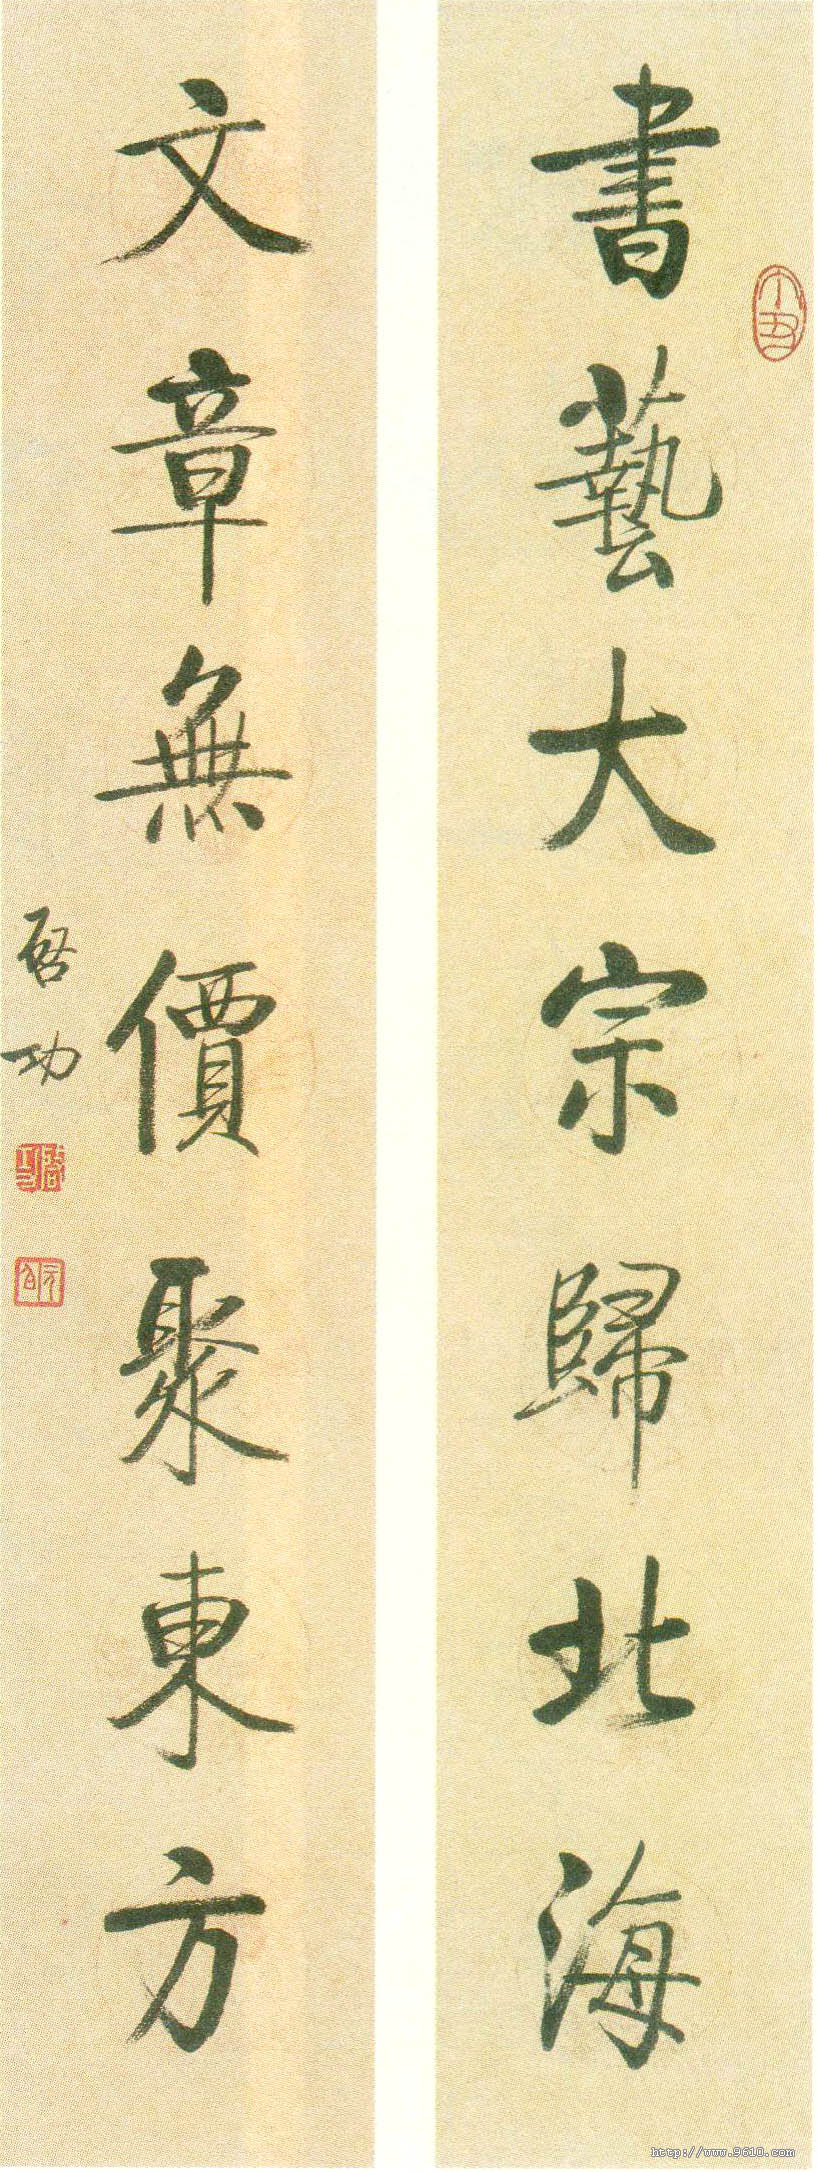 書藝大宗歸北海
文章無價聚東方
啓功
啓功
元白
http://www.9610.com